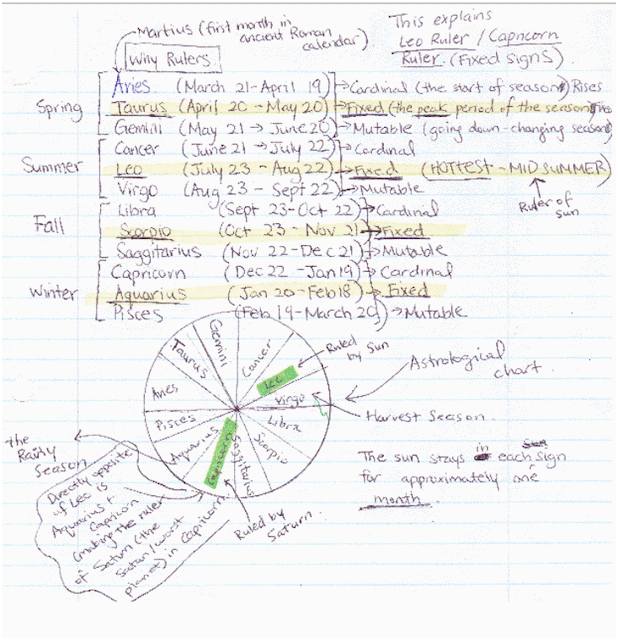 Martius (first month in
ancient Roman
calendar).
This explains
Leo Ruler / Capricorn
Ruler. (Fixed signs).
Why Rulers
Spring
Aries (March 21-April 19) → Cardinal (the start of season) Rises
Taurus (April 20 - May 20) → Fixed (the peak period of the season)
Gemini (May 21 → June 20) → Mutable (going down-changing season)
Summer
Cancer (June 21 → July 22) → Cardinal
Leo (July 23 - Aug 22) → Fixed (HOTTEST - MID SUMMER)
Virgo (Aug 23 - Sept 22) → Mutable
Ruler of
sun
Fall
Libra (Sept 23-Oct 22) → Cardinal
Scorpio (Oct 23 - Nov 21) → Fixed
Saggitarius (Nov 22-Dec 21) → Mutable
Winter
Capricorn (Dec 22 - Jan 19) → Cardinal
Aquarius (Jan 20-Feb 18) → Fixed
Pisces (Feb 19-March 20) → Mutable
Gemini
Taurus
Cancer
Aries
Leo
Virgo
Pisces
Libra
Aquarius
Capricorn
Saggitarius
Scorpio
Ruled
by Sun
Astrological
chart.
Harvest Season.
The sun stays in each sign
for approximately one
month.
Ruled by
Saturn.
the
Rainy
Season
Directly opposite
of Leo is
Aquarius +
Capricorn
(making the ruler
of Saturn (the
Satan/worst
planet) in Capricorn